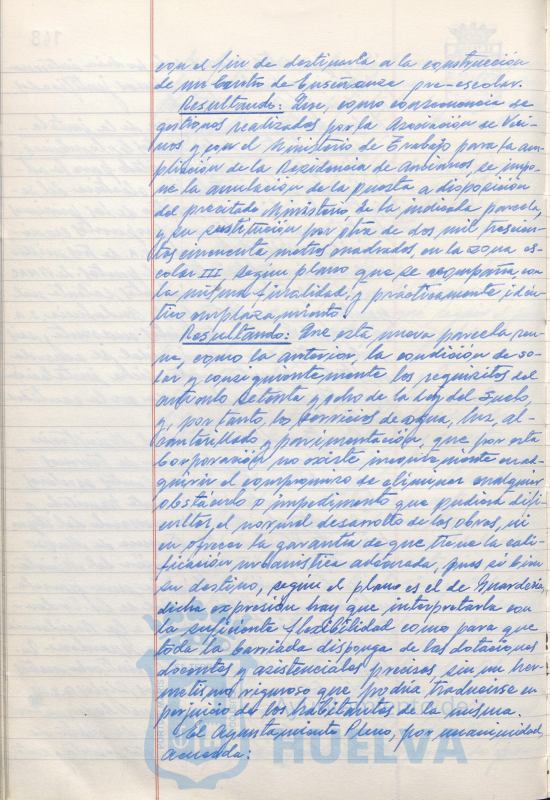 con el fin de destinarla a la construcción
de un Centro de Enseñanza pre-escolar.
Resultando: Que, como consecuencia de
gestiones realizadas por la Asociación de Veci-
nos y con el Ministerio de Trabajo para la am-
pliación de la Residencia de Ancianos, se impo-
ne la anulación de la puesta a disposición
del precitado Ministerio de la indicada parcela,
y su sustitución por otra de dos mil trescien-
tos cincuenta metros cuadrados, en la zona es-
colar III según plano que se acompaña, con
la misma finalidad, y prácticamente idén-
tico emplazamiento.
Resultando: Que esta nueva parcela reu-
ne, como la anterior, la condición de so-
lar y consiguientemente los requisitos del
artículo setenta y ocho de la Ley del Suelo,
y, por tanto, los servicios de agua, luz, al-
cantarillado y pavimentación, que por esta
Corporación no existe inconveniente en ad-
quirir el compromiso de eliminar cualquier
obstáculo o impedimento que pudiera difi-
cultar el normal desarrollo de las obras, ni
en ofrecer la garantía de que tiene la cali-
ficación urbanística adecuada, pues si bien
su destino, según el plano es el de Guardería,
dicha expresión hay que interpretarla con
la suficiente flexibilidad como para que
toda la barriada disponga de las dotaciones
docentes y asistenciales precisas, sin un her-
metismo riguroso que podría traducirse en
perjuicio de los habitantes de la misma.
El Ayuntamiento Pleno, por unanimidad,
acuerda:
HUELVA